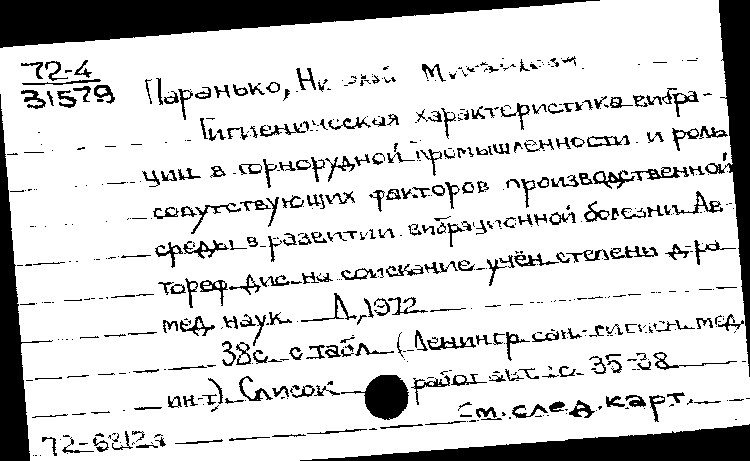 72-4
31579
Паранько, Николай Михайлович
Гигиеническая характеристика вибра-
ции в горнорудной промышленности и роль
сопутствующих факторов производственной
среды в развитии вибрационной болезни. Ав-
тореф. дис. на соискание учён. степени д-ра
мед. наук. Л., 1972.
38с. с табл. (Ленингр. сан.-гигиен. мед.
ин-т). Список работ авт.: с. 35-38
См. след. карт.
72-6812а